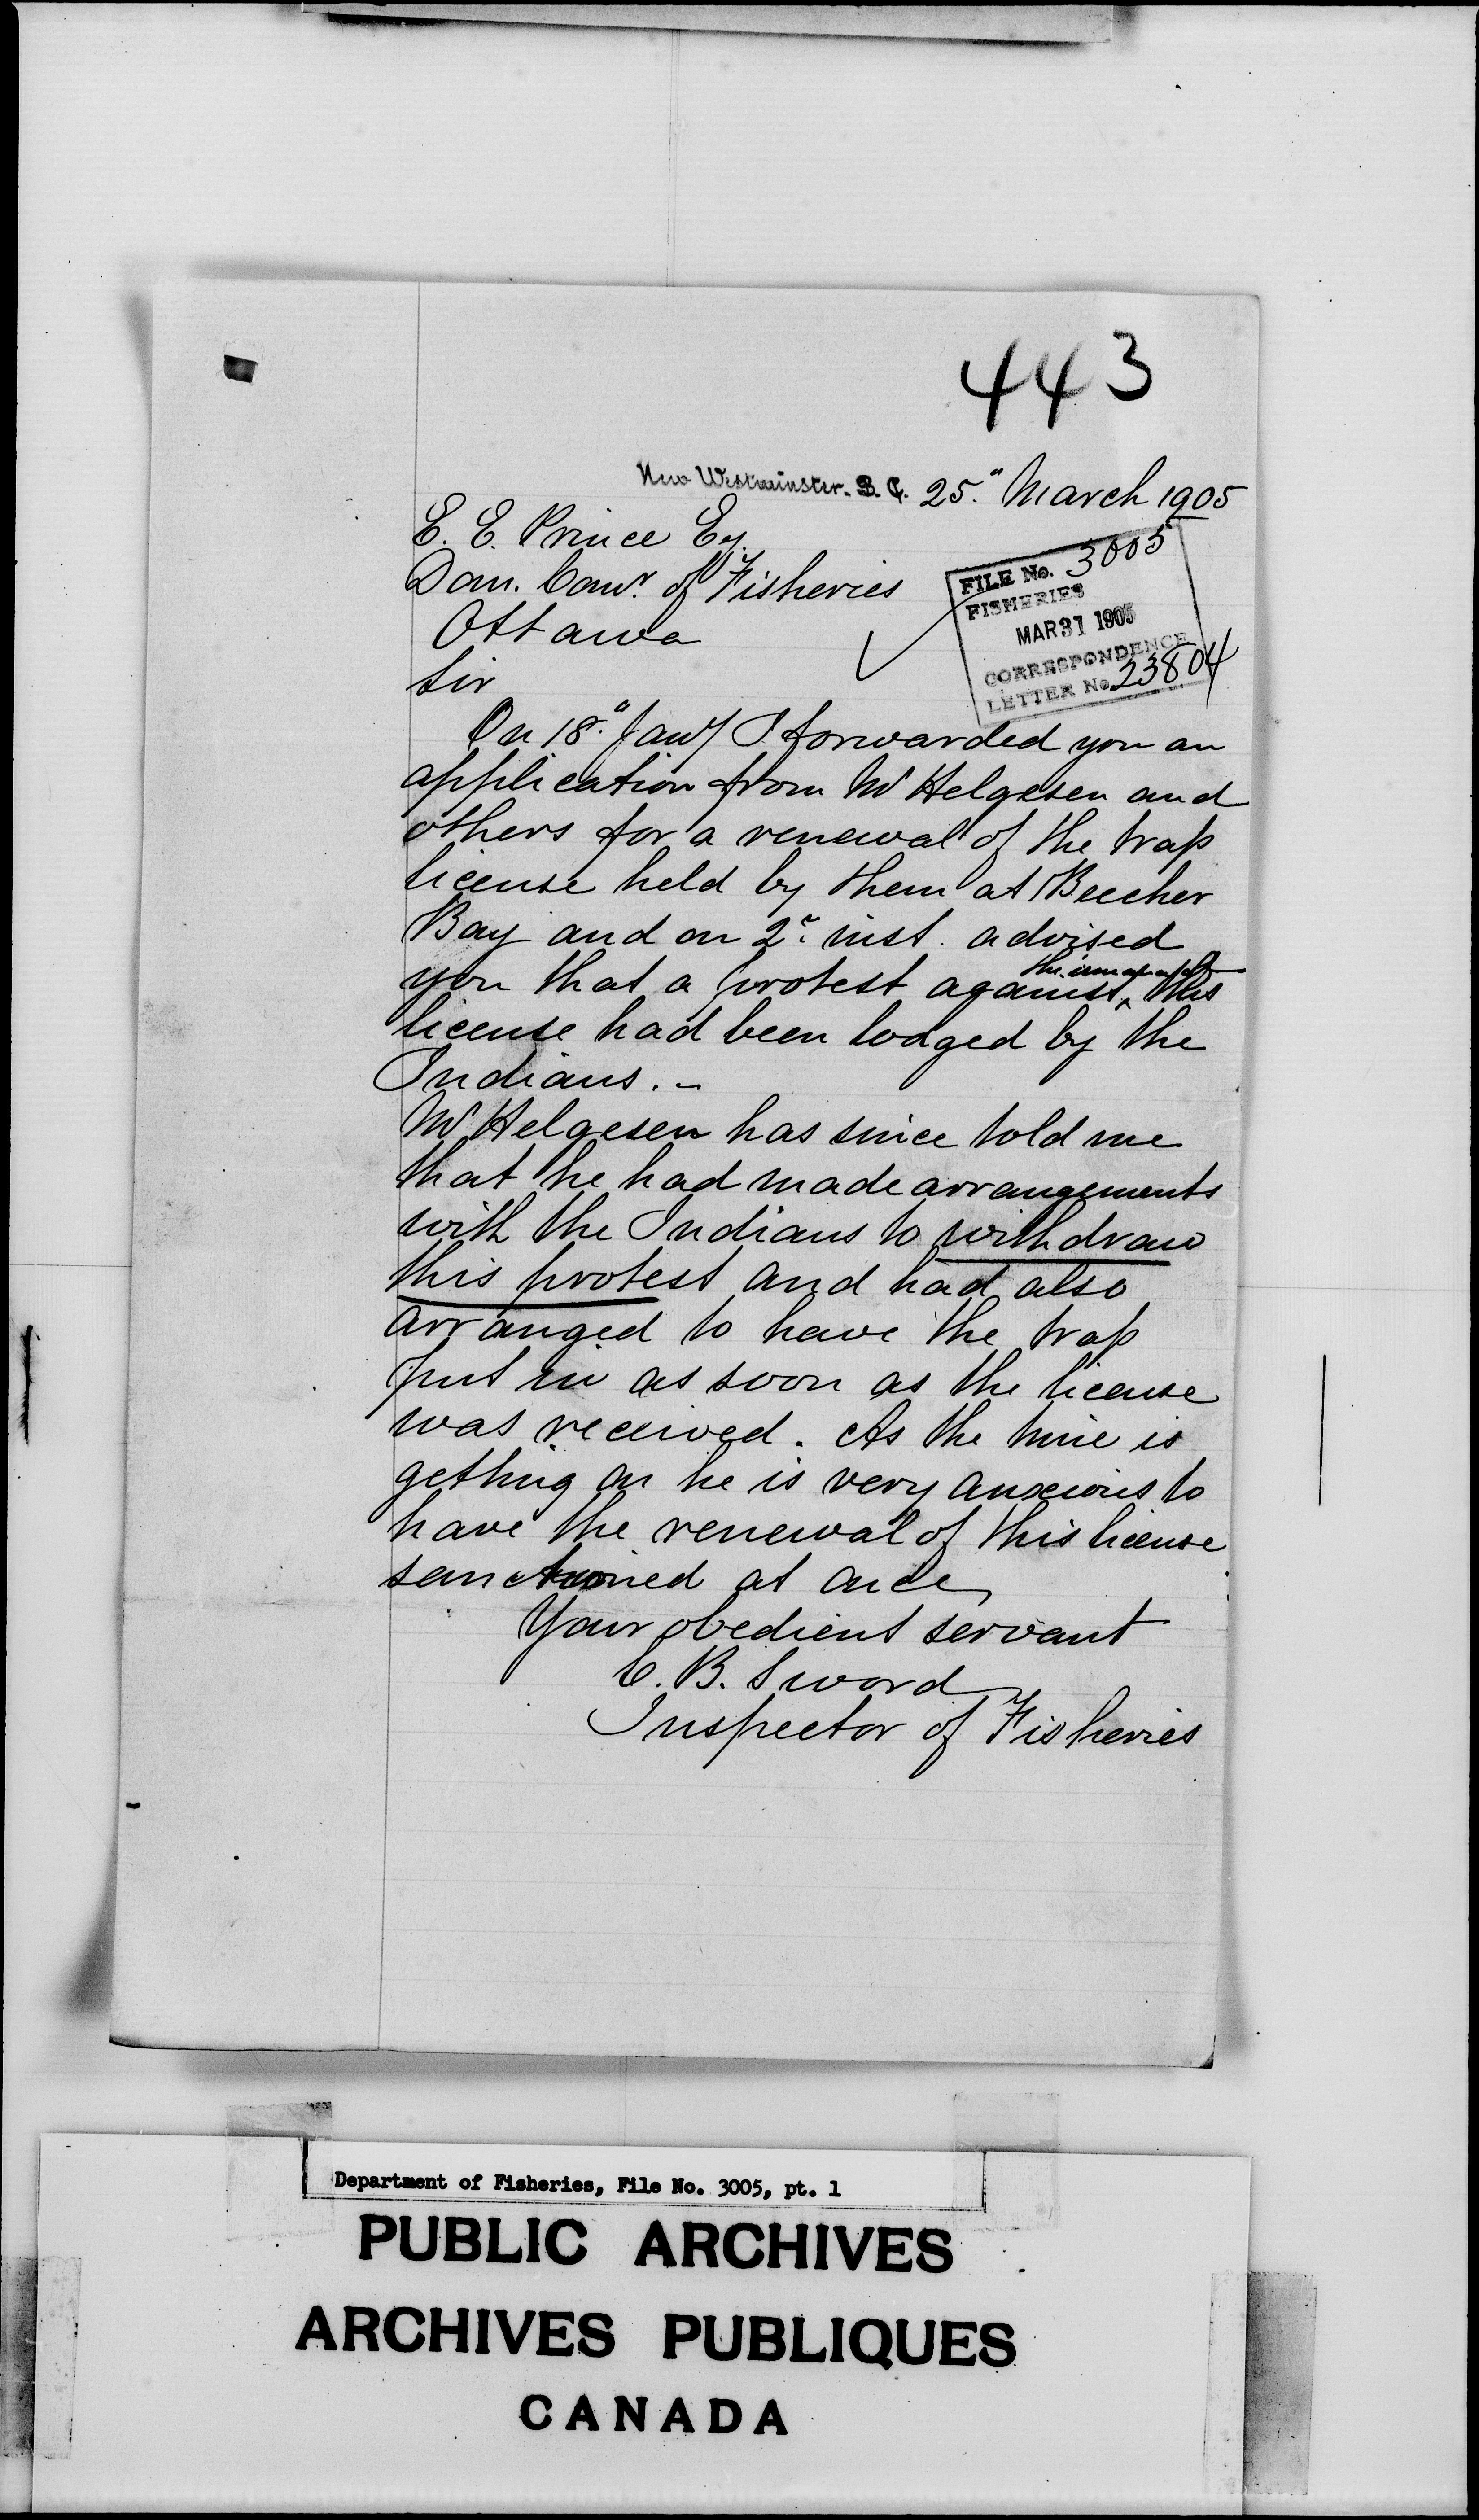 443
New Westminster. B. C. 25." March 1905
E. E. Prince Esq.
Dom. Comr. of Fisheries
Ottawa
Sir
FILE No. 3005
FISHERIES
MAR 31 1905
CORRESPONDENCE
LETTER No. 23804
On 18." Jany I forwarded you an
application from Mr Helgesen and
others for a renewal of the trap
license held by them at Beecher
Bay and on 2d. inst. advised
you that a protest against the issuance of this
license had been lodged by the
Indians. -
Mr Helgesen has since told me
that he had made arrangements
with the Indians to withdraw
this protest and had also
arranged to have the trap
put in as soon as the license
was received. As the time is
getting on he is very anxious to
have the renewal of this license
sanctioned at once
Your obedient servant
C. B. Sword
Inspector of Fisheries
Department of Fisheries, File No. 3005, pt. 1
PUBLIC ARCHIVES
ARCHIVES PUBLIQUES
CANADA